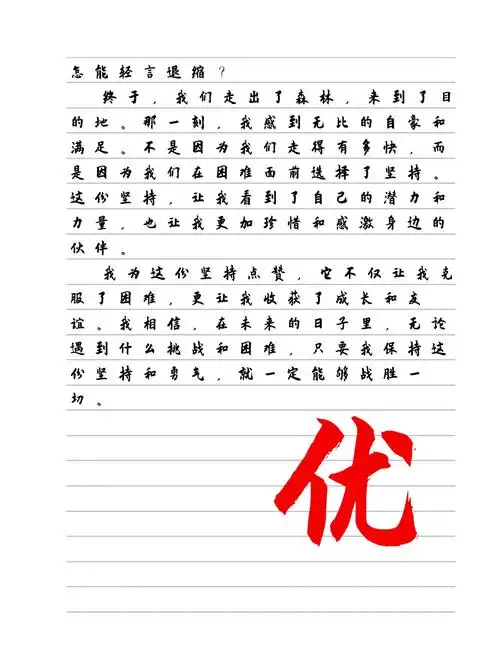 怎能轻言退缩？
终于，我们走出了森林，来到了目
的地。那一刻，我感到无比的自豪和
满足。不是因为我们走得有多快，而
是因为我们在困难面前选择了坚持。
这份坚持，让我看到了自己的潜力和
力量，也让我更加珍惜和感激身边的
伙伴。
我为这份坚持点赞，它不仅让我克
服了困难，更让我收获了成长和友
谊。我相信，在未来的日子里，无论
遇到什么挑战和困难，只要我保持这
份坚持和勇气，就一定能够战胜一
切。
优